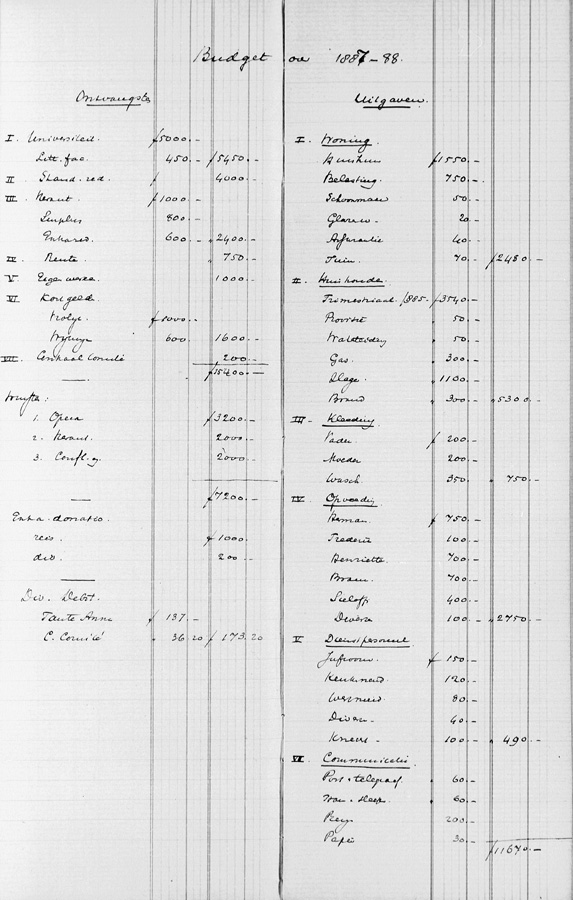 Budget over 1887-88.
Ontvangsten
I. Universiteit. f 5000.-
Litt. fac. 450.- f 5450.-
II Stand. red. f 4000.-
III Heraut f 1000.-
600.- 2400.-
IV Rente 750.-
V Eigen werken 1000.-
VI
f 1000.-
600 1600.-
VII Centraal Comité 200.-
f 15400.-
1. Opera f 3200.-
2. Heraut. 2000.-
3. Conf. 2000.-
f 7200.-
Extra-donatie.
reis. f 1000.
div. 200.-
Div. Debet.
Tante Anna f 137.-
C. Comité 36.20 f 173.20
Uitgaven.
I. Woning.
Huishuur f 1550.-
Belasting. 750.-
Schoonmaak 50.-
Glazen 20.-
Assurantie 40.-
Tuin. 70.- f 2480.-
II. Huishouden.
Trimestriaal. f 885.- f 3540.-
Provisie 50.-
50.-
Gas. 300.-
1100.-
Brand 300.- 5300.-
III. Kleeding
Vader f 200.-
Moeder 200.-
Wasch. 350.- 750.-
IV. Opvoeding
Herman. f 750.-
Frederik 100.-
Henriette 700.-
Bram. 700.-
400.-
Diversa 100.- 2750.-
V Dienstpersoneel
Jufvrouw. f 150.-
Keukenmeid. 120.-
Werkmeid 80.-
Diversen 40.-
Knecht - 100.- 490.-
VI Communicatie
Post & telegraaf. 60.-
Tram & sleep. 60.-
Reis 200.-
Papier 30.-
f 11670.-